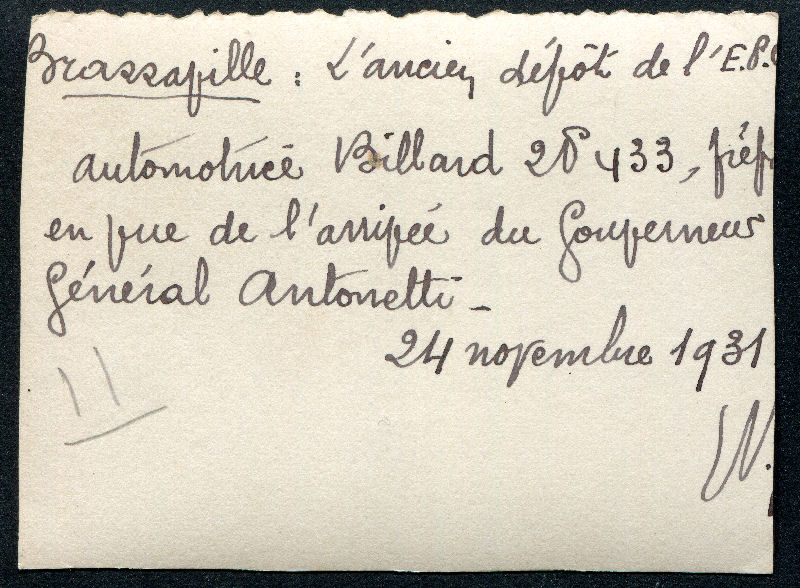 Brazzaville : L'ancien dépôt de l'E.P.
automotrice Billard 433,
en vue de l'arrivée du Gouverneur
Général Antonetti -
24 novembre 1931
11